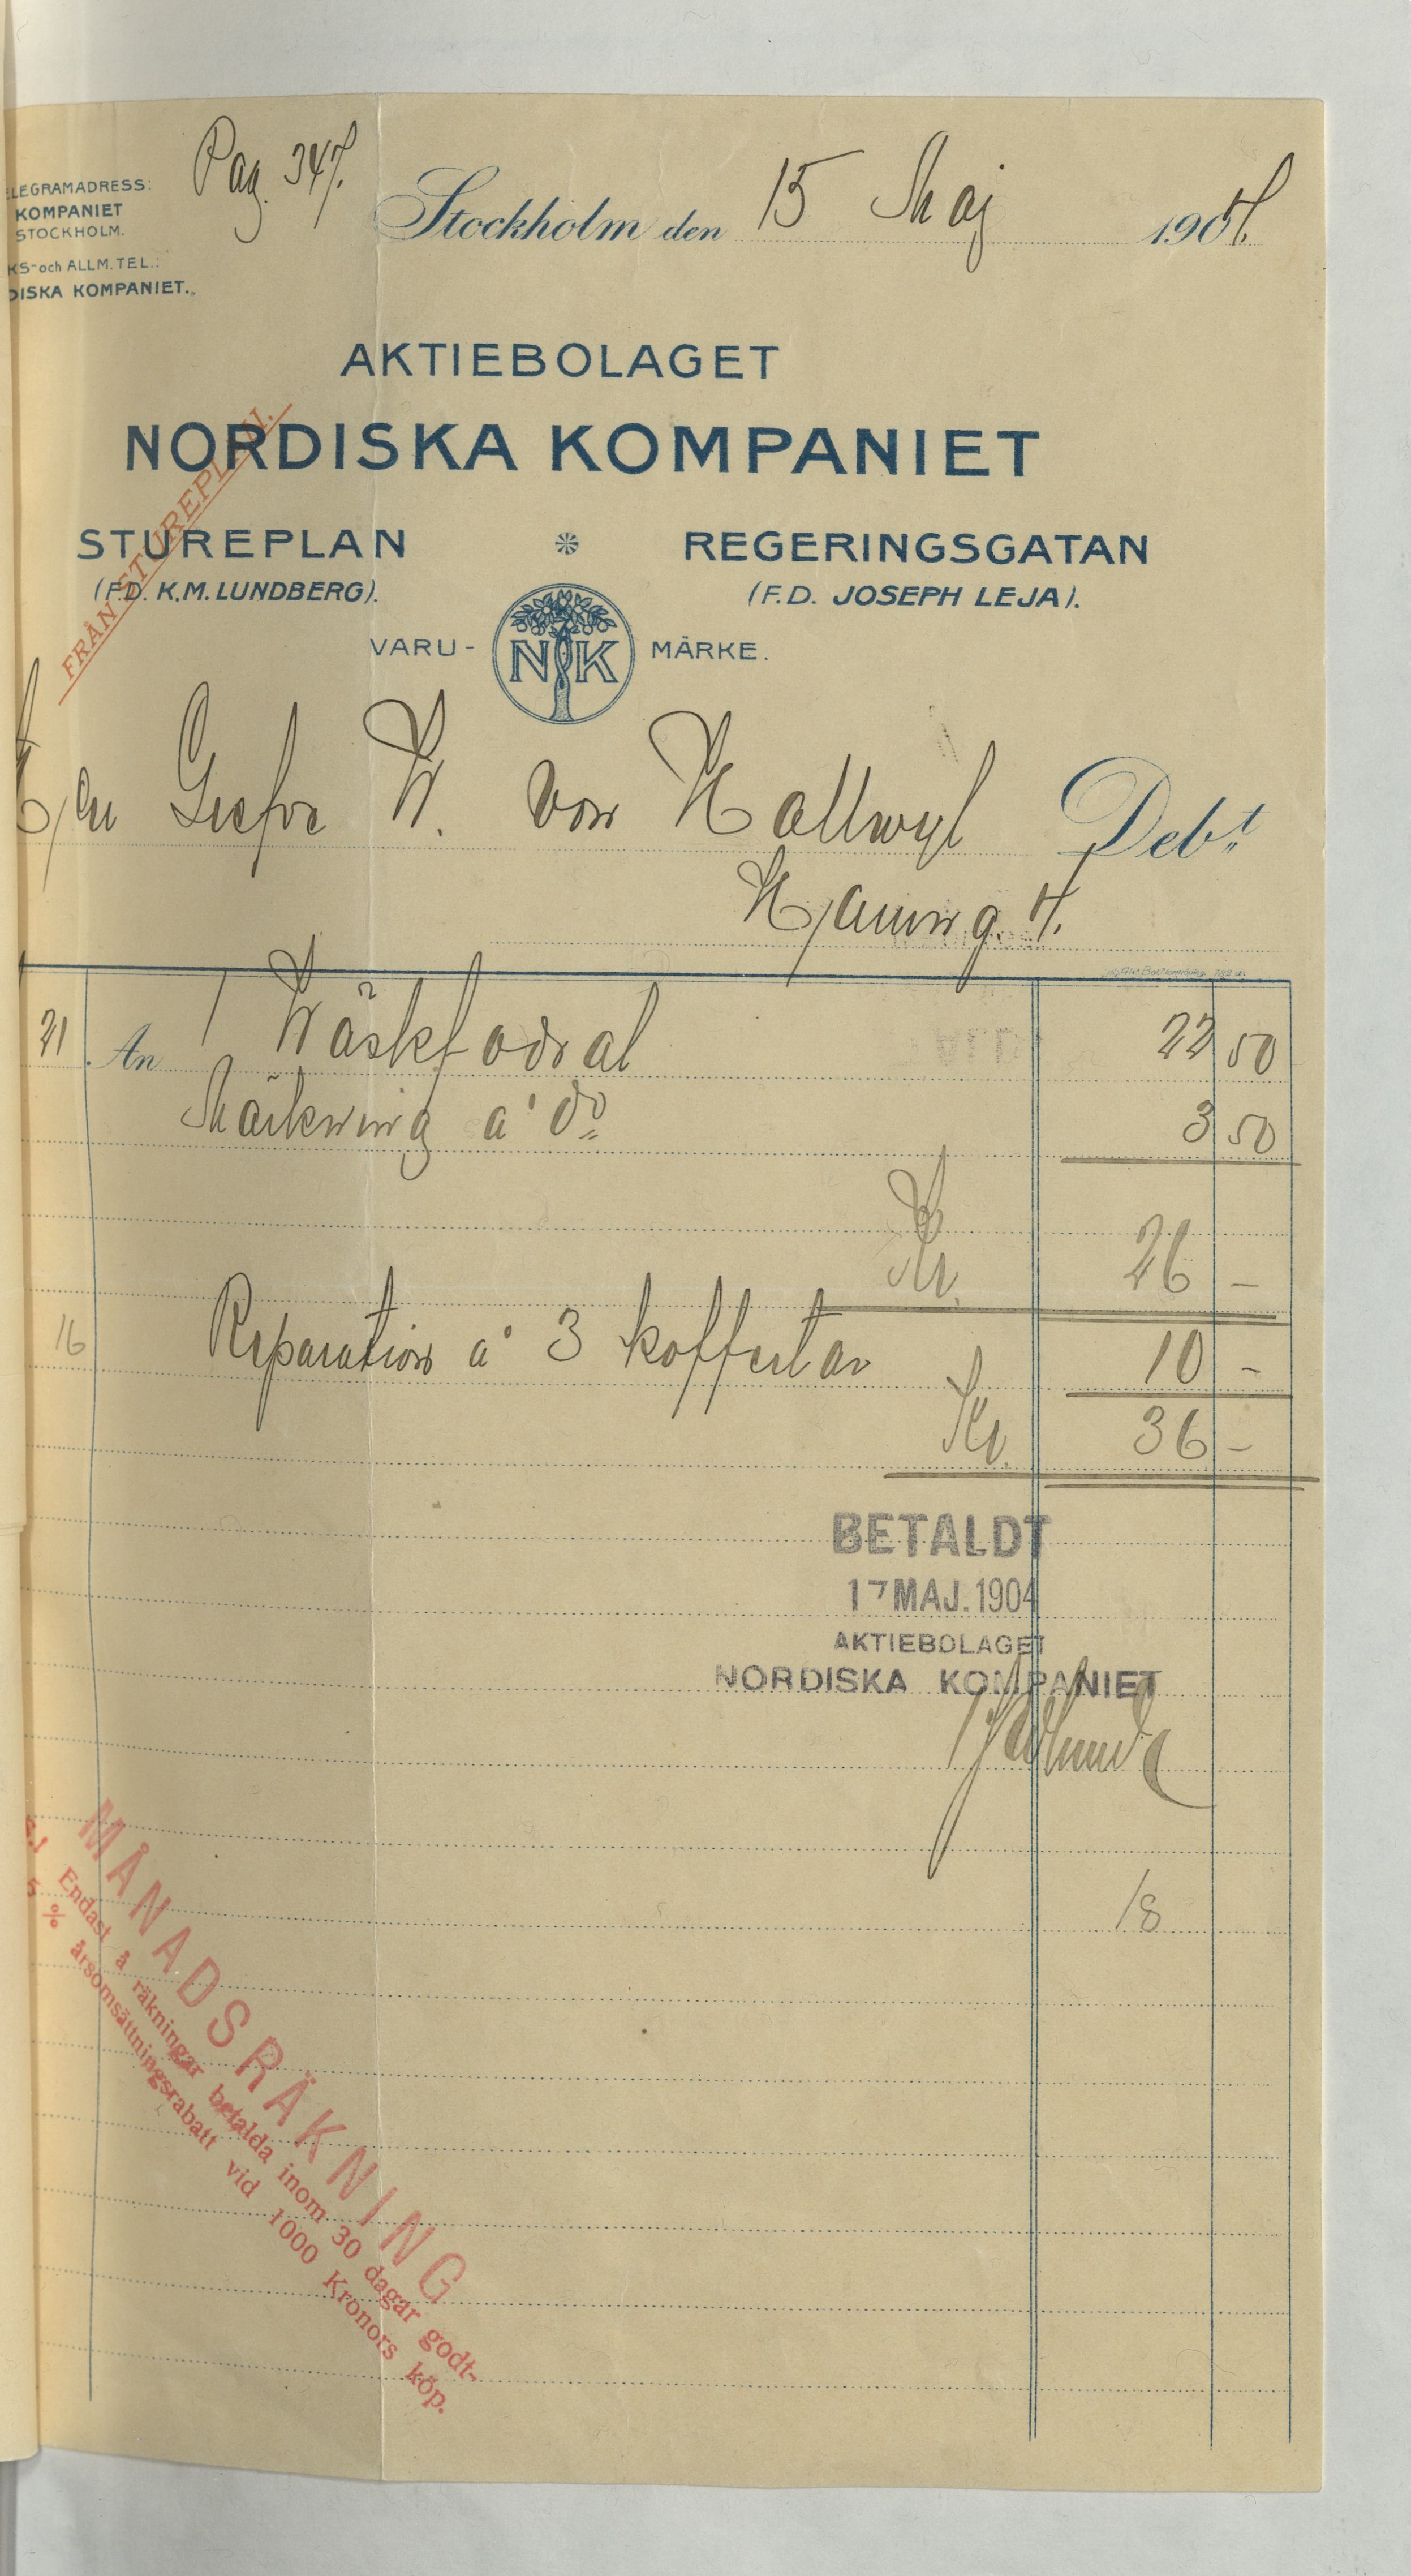 Pag. 347.
ELEGRAMADRESS:
KOMPANIET
STOCKHOLM.
KS- och ALLM. TEL.:
DISKA KOMPANIET.
Stockholm den 15 Maj 1904.
AKTIEBOLAGET
NORDISKA KOMPANIET
STUREPLAN REGERINGSGATAN
(F.D. K.M. LUNDBERG). (F.D. JOSEPH LEJA).
FRÅN STUREPLAN.
VARU- NK MÄRKE.
Grefve W. von Hallwyl Debt
Hamng. 4.
21 An 1 Wäskfodral 22 50
Märkning a' do 3 50
Kr. 26 —
16 Reparation a' 3 koffertar 10 —
Kr. 36 —
BETALDT
17 MAJ. 1904
AKTIEBOLAGET
NORDISKA KOMPANIET
18
MÅNADSRÄKNING
Endast å räkningar betalda inom 30 dagar godt-
5 % årsomsättningsrabatt vid 1000 Kronors köp.